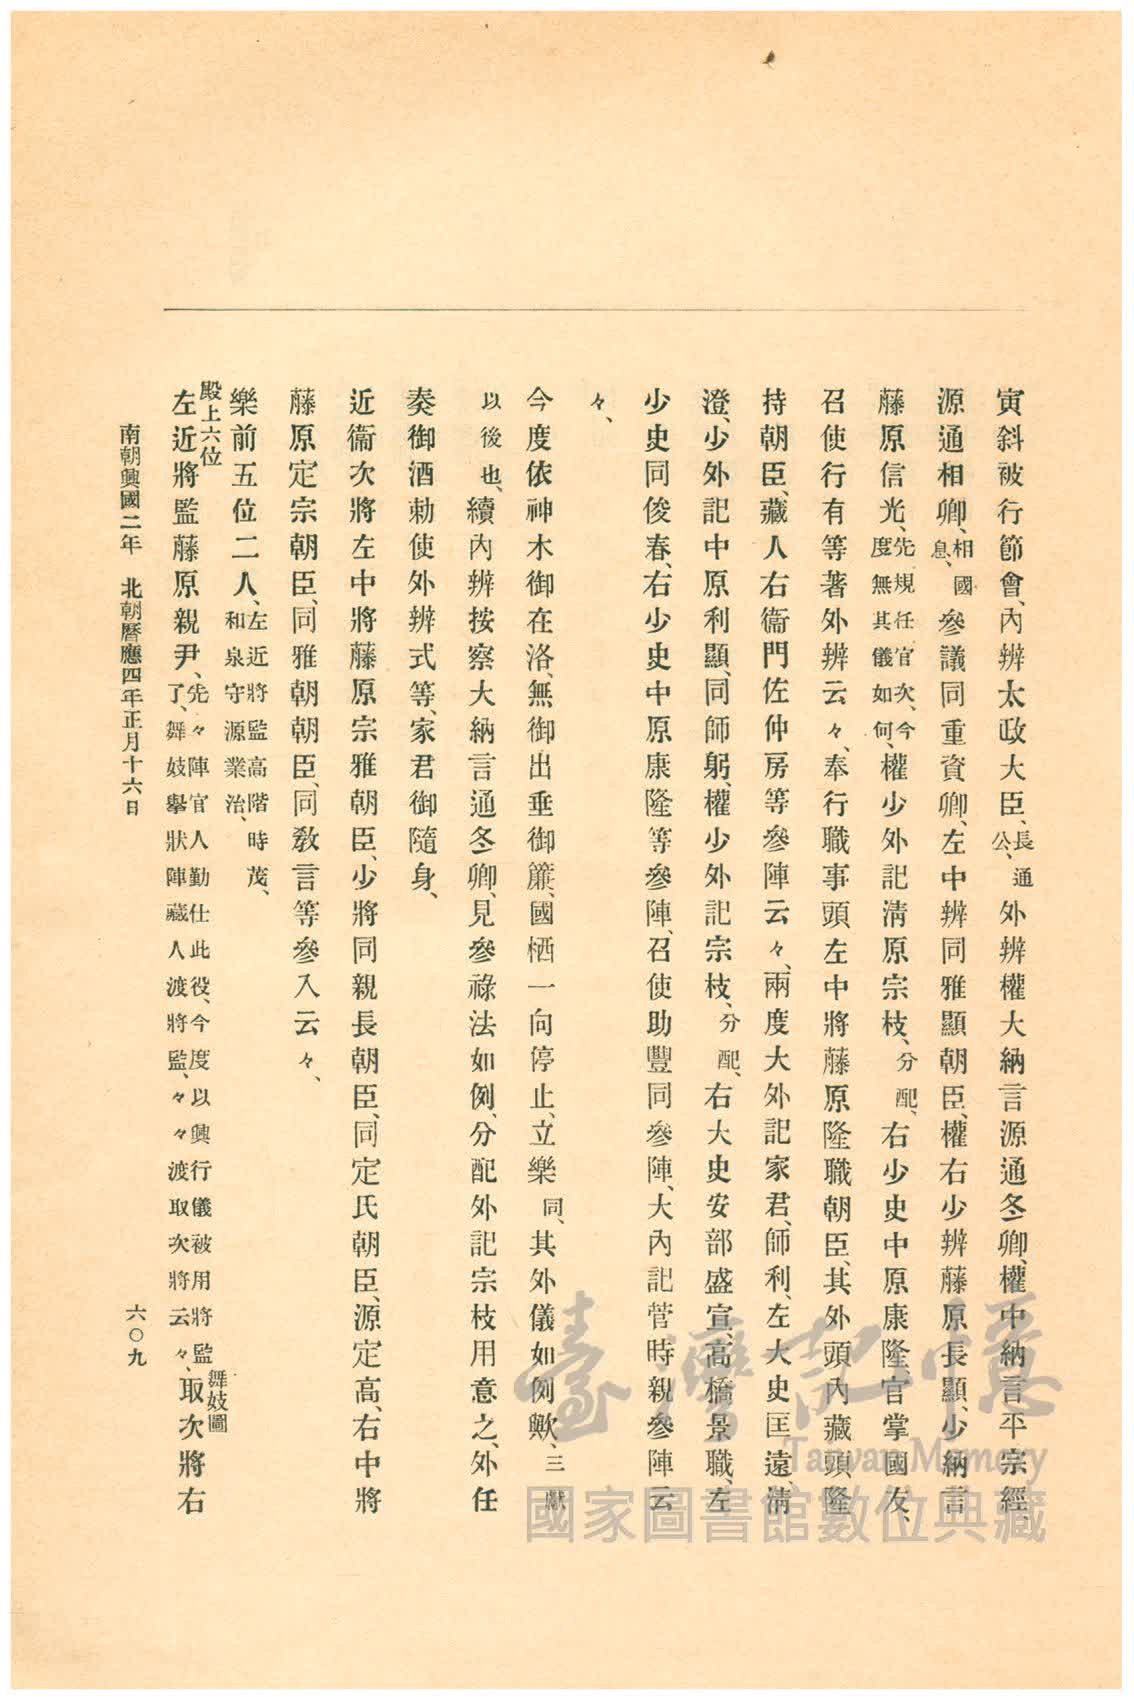 寅斜被行節會、內辨太政大臣、長通公、外辨權大納言源通冬卿、權中納言平宗經、
源通相卿、相國息、參議同重資卿、左中辨同雅顯朝臣、權右少辨藤原長顯、少納言
藤原信光、先規任官次、今度無其儀如何、權少外記淸原宗枝、分配、右少史中原康隆、官掌國友、
召使行有等著外辨云々、奉行職事頭左中將藤原隆職朝臣、其外頭內藏頭隆
持朝臣、藏人右衞門佐仲房等參陣云々、兩度大外記家君、師利、左大史匡遠、淸
澄、少外記中原利顯、同師躬、權少外記宗枝、分配、右大史安部盛宣、高橋景職、左
少史同俊春、右少史中原康隆等參陣、召使助豐同參陣、大內記菅時親參陣云
々、
今度依神木御在洛、無御出垂御簾、國栖一向停止、立樂同、其外儀如例歟、三獻
以後也、續內辨按察大納言通冬卿、見參祿法如例、分配外記宗枝用意之、外任
奏御酒勅使外辨式等、家君御隨身、
近衞次將左中將藤原宗雅朝臣、少將同親長朝臣、同定氏朝臣、源定高、右中將
藤原定宗朝臣、同雅朝朝臣、同敎言等參入云々、
樂前五位二人、左近將監高階時茂、和泉守源業治、
殿上六位
左近將監藤原親尹、先々陣官人勤仕此役、今度以興行儀被用將監了、舞妓擧狀陣藏人渡將監、々々渡取次將云々、取次將右
舞妓圖
南朝興國二年　北朝曆應四年正月十六日
六〇九
臺灣記憶
Taiwan Memory
國家圖書館數位典藏